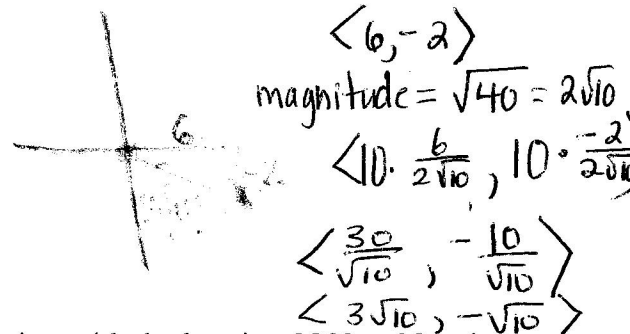 <6, -2>
magnitude = √40 = 2√10
6
<10 · 6/(2√10), 10 · -2/(2√10)
<30/√10, -10/√10>
<3√10, -√10>